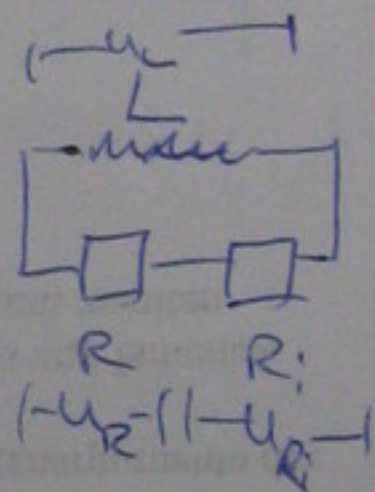 u_L
L
R R_i
u_R u_Ri